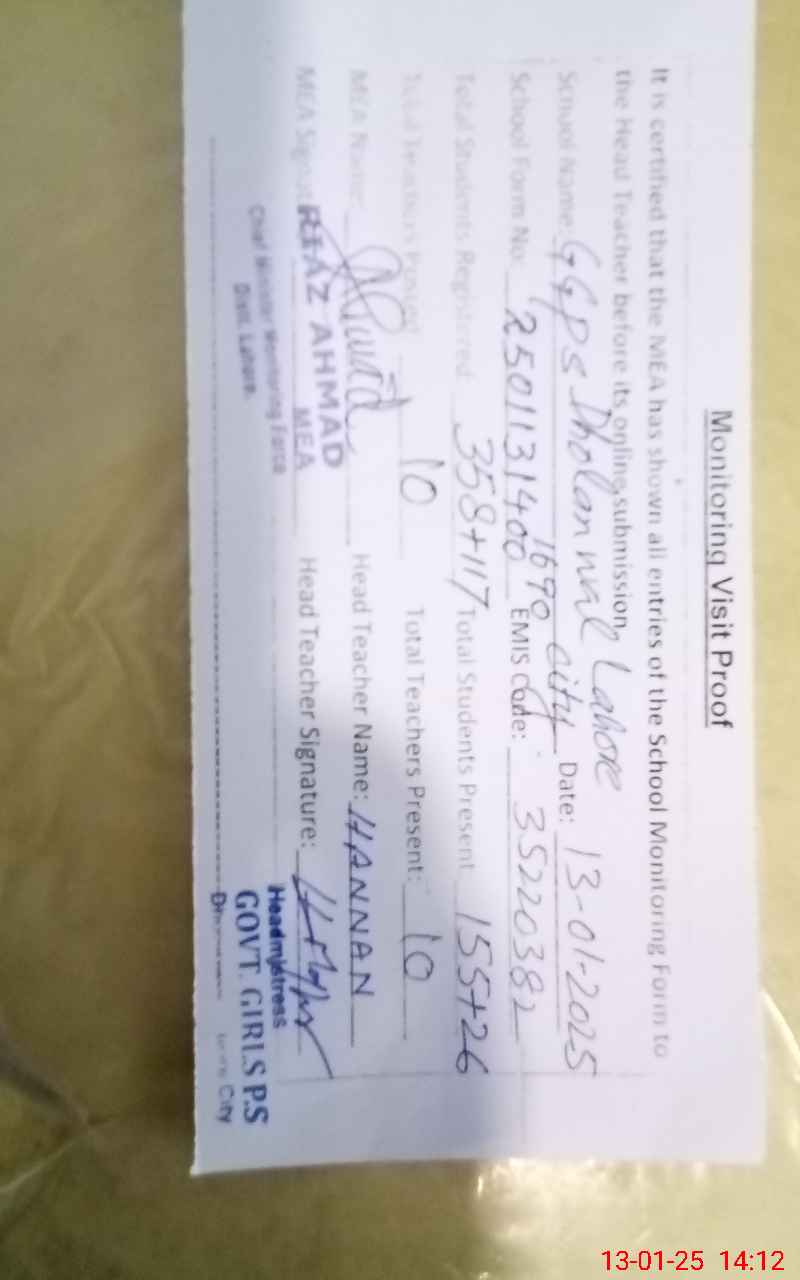 Monitoring Visit Proof
It is certified that the MEA has shown all entries of the School Monitoring Form to
the Head Teacher before its online submission.
School Name: GGPS Dholanwal Lahore city Date: 13-01-2025
School Form No: 2501131400 1690 EMIS Code: 35220382
Total Students Registered 358+117 Total Students Present 155+26
Total Teachers Present 10 Total Teachers Present: 10
MEA Name: Head Teacher Name: HANNAN
MEA Signature Head Teacher Signature:
RIAZ AHMAD
MEA
Chief Minister Monitoring Force
Distt. Lahore.
Headmistress
GOVT. GIRLS P.S
City
13-01-25 14:12